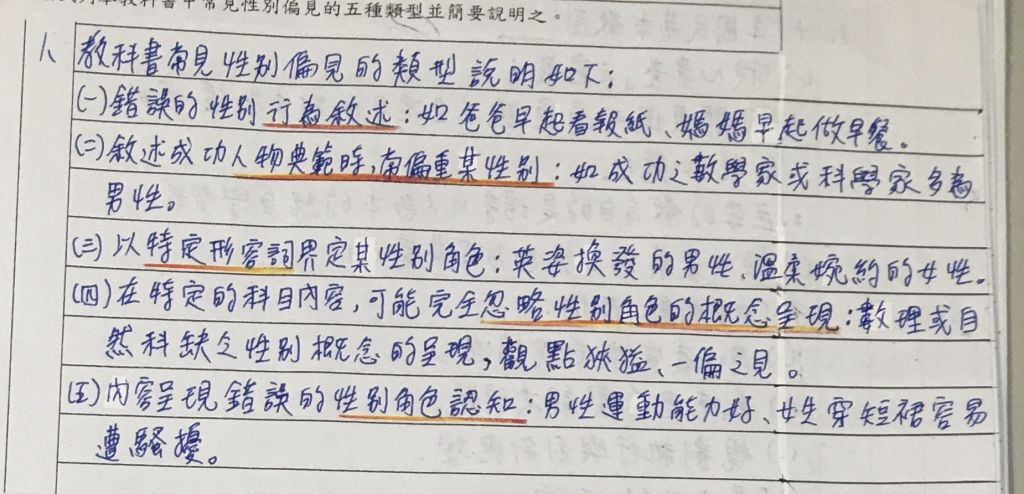 教科書中常見性別偏見的五種類型並簡要說明之。
1、教科書常見性別偏見的類型說明如下：
(一)錯誤的性別行為敘述：如爸爸早起看報紙、媽媽早起做早餐。
(二)敘述成功人物典範時，常偏重某性別：如成功之數學家或科學家多為
男性。
(三)以特定形容詞界定某性別角色：英姿換發的男性、溫柔婉約的女性。
(四)在特定的科目內容，可能完全忽略性別角色的概念呈現：數理或自
然科缺乏性別概念的呈現，觀點狹猛、一偏之見。
(五)內容呈現錯誤的性別角色認知：男性運動能力好、女生穿短裙容易
遭騷擾。